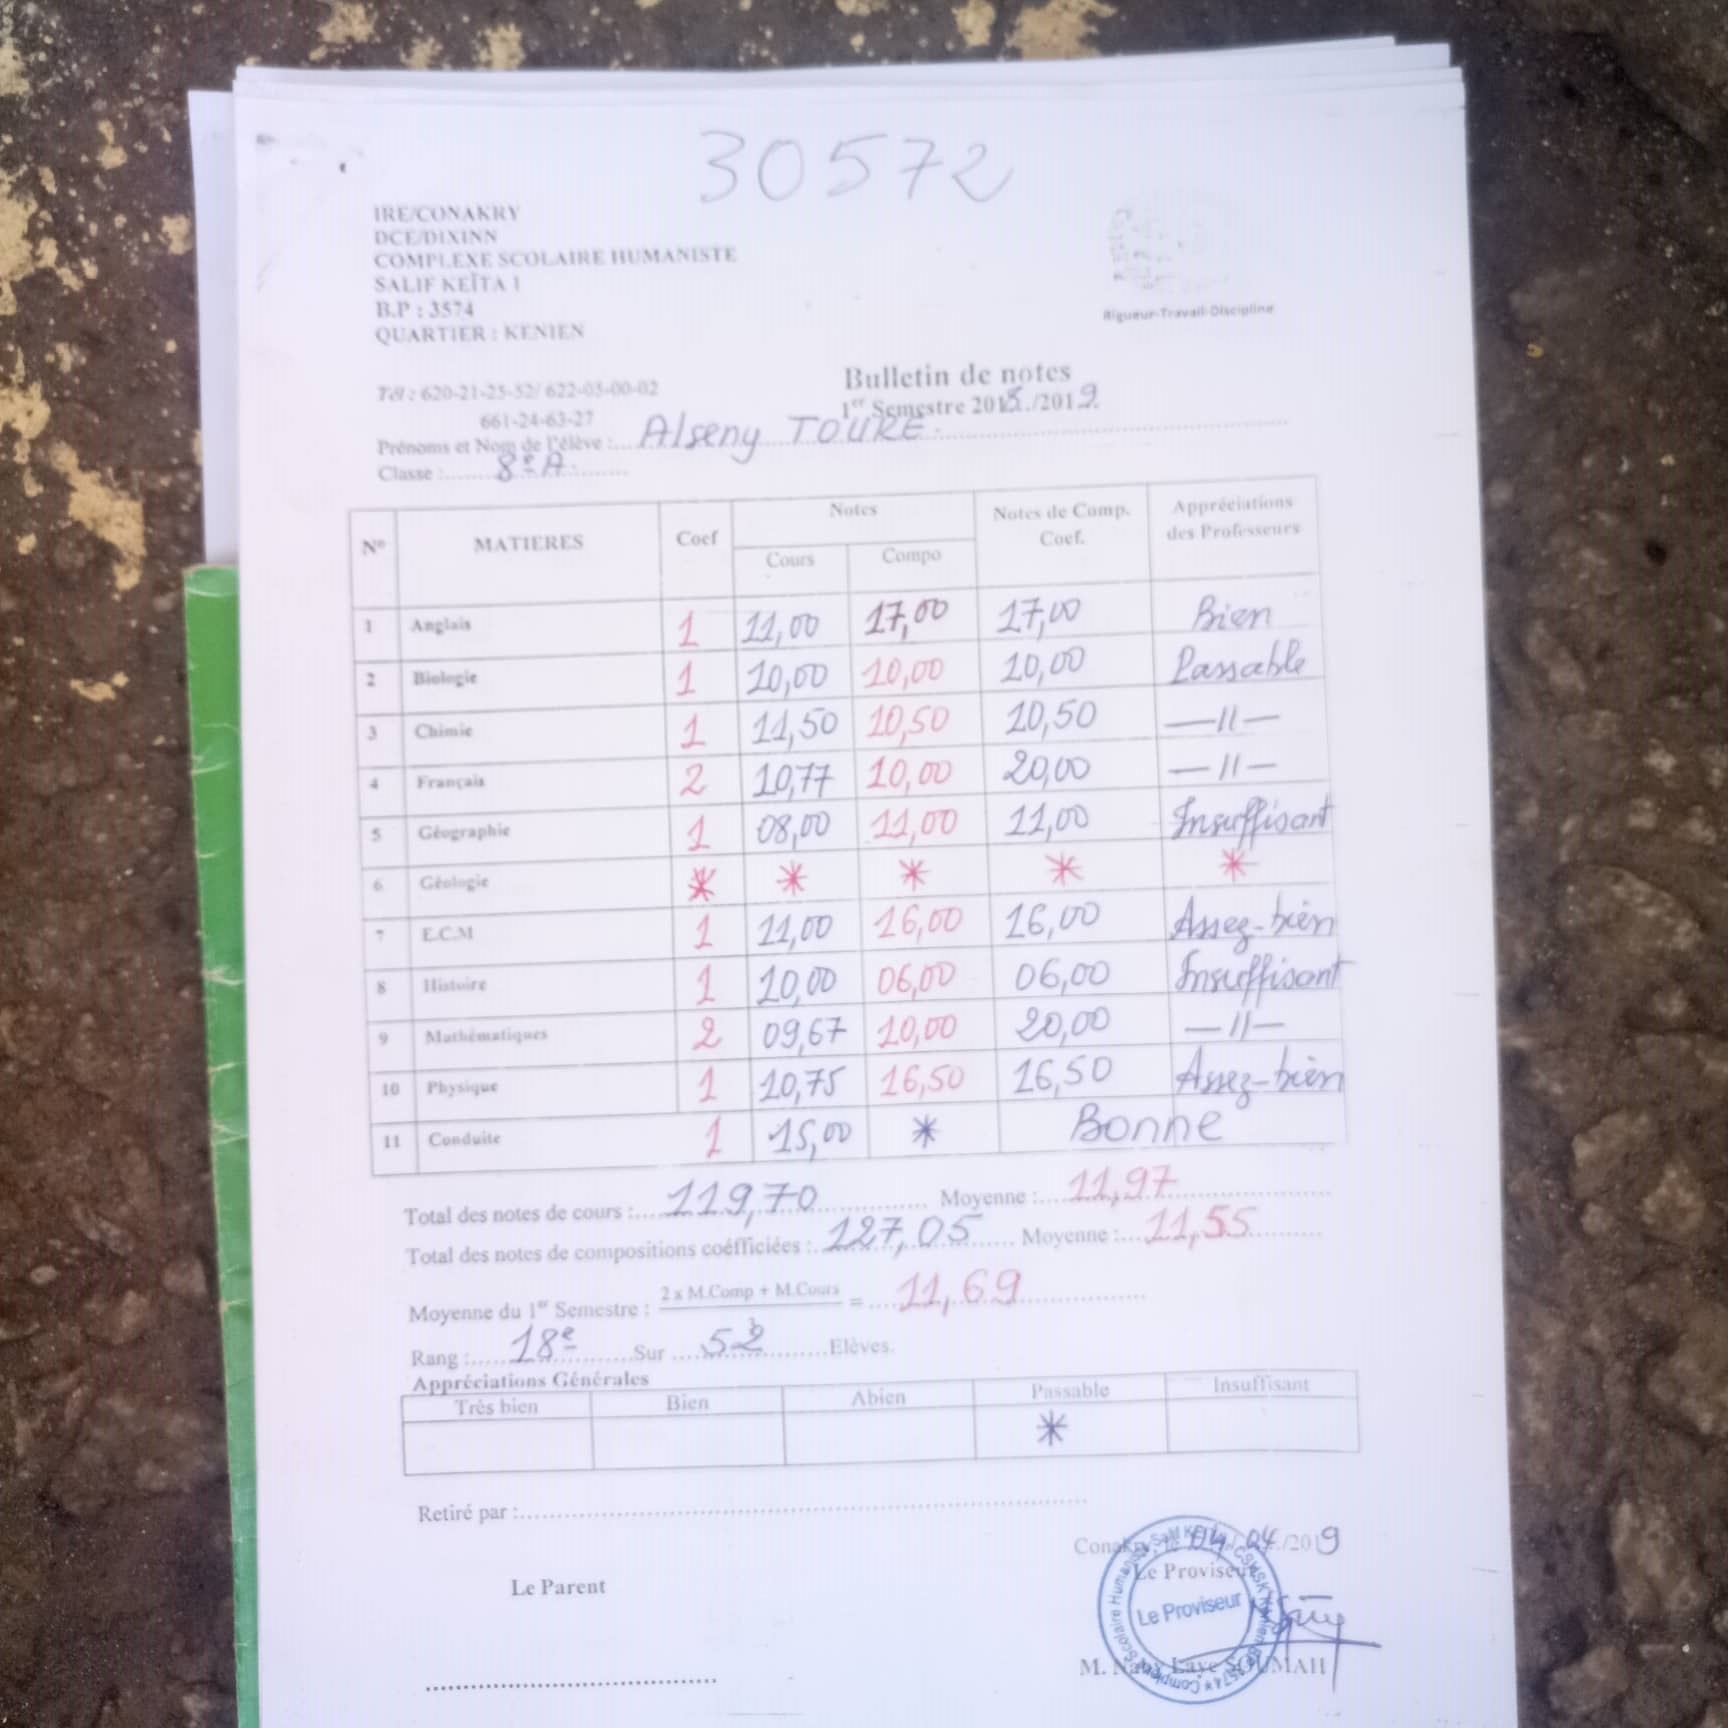 30572
IRE/CONAKRY
DCE/DIXINN
COMPLEXE SCOLAIRE HUMANISTE
SALIF KEÏTA 1
B.P : 3574
QUARTIER : KENIEN
Rigueur-Travail-Discipline
Tél : 620-21-25-52/ 622-03-00-02
661-24-63-27
Bulletin de notes
1er Semestre 2018./2019.
Prénoms et Nom de l'élève : Alseny TOURE.
Classe : 8e A.
N° MATIERES Coef Notes Notes de Comp. Coef. Appréciations des Professeurs
Cours Compo
1 Anglais 1 11,00 17,00 17,00 Bien
2 Biologie 1 10,00 10,00 10,00 Passable
3 Chimie 1 11,50 10,50 10,50 —//—
4 Français 2 10,77 10,00 20,00 —//—
5 Géographie 1 08,00 11,00 11,00 Insuffisant
6 Géologie * * * * *
7 E.C.M 1 11,00 16,00 16,00 Assez-bien
8 Histoire 1 10,00 06,00 06,00 Insuffisant
9 Mathématiques 2 09,67 10,00 20,00 —//—
10 Physique 1 10,75 16,50 16,50 Assez-bien
11 Conduite 1 15,00 * Bonne
Total des notes de cours : 119,70 Moyenne : 11,97
Total des notes de compositions coéfficiées : 127,05 Moyenne : 11,55
Moyenne du 1er Semestre : 2 x M.Comp + M.Cours = 11,69
Rang : 18e Sur Elèves.
Appréciations Générales
Très bien Bien Abien Passable Insuffisant
*
Retiré par :
Conakry, le 04/04/2019
Le Parent
Le Proviseur
Le Proviseur
M. Naby Laye SOUMAH